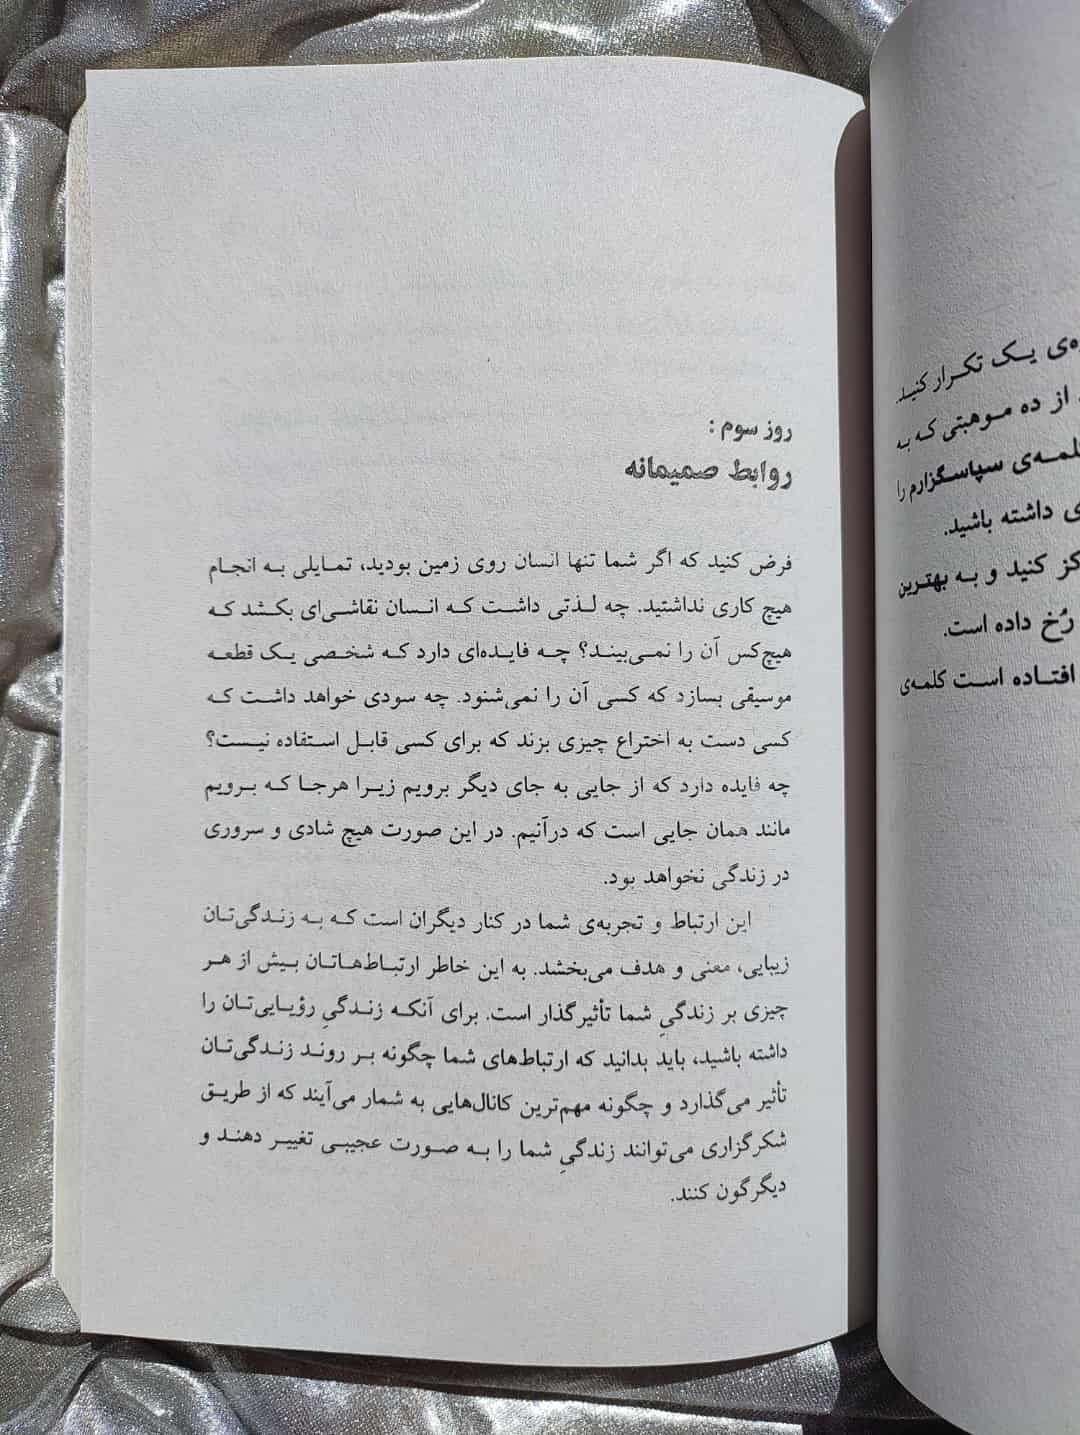 روز سوم :
روابط صمیمانه
فرض کنید که اگر شما تنها انسان روی زمین بودید، تمایلی به انجام
هیچ کاری نداشتید. چه لذتی داشت که انسان نقاشی‌ای بکشد که
هیچ‌کس آن را نمی‌بیند؟ چه فایده‌ای دارد که شخصی یک قطعه
موسیقی بسازد که کسی آن را نمی‌شنود. چه سودی خواهد داشت که
کسی دست به اختراع چیزی بزند که برای کسی قابل استفاده نیست؟
چه فایده دارد که از جایی به جای دیگر برویم زیرا هرجا که برویم
مانند همان جایی است که درآنیم. در این صورت هیچ شادی و سروری
در زندگی نخواهد بود.
این ارتباط و تجربه‌ی شما در کنار دیگران است که به زندگی‌تان
زیبایی، معنی و هدف می‌بخشد. به این خاطر ارتباط‌هاتان بیش از هر
چیزی بر زندگیِ شما تأثیرگذار است. برای آنکه زندگیِ رؤیایی‌تان را
داشته باشید، باید بدانید که ارتباط‌های شما چگونه بر روند زندگی‌تان
تأثیر می‌گذارد و چگونه مهم‌ترین کانال‌هایی به شمار می‌آیند که از طریق
شکرگزاری می‌توانند زندگیِ شما را به صورت عجیبی تغییر دهند و
دیگرگون کنند.
یک تکرار کنید.
از ده موهبتی که به
سپاسگزارم را
داشته باشید.
کنید و به بهترین
رُخ داده است.
افتاده است کلمه‌ی